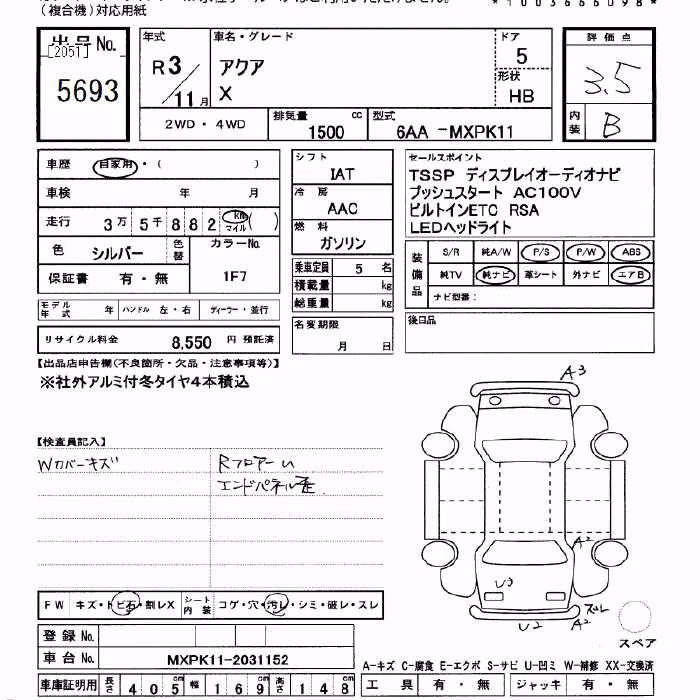 （複合機）対応用紙
*1003666098*
出品No.
[2051]
5693
年式
R3/11月
車名・グレード
アクア
X
ドア
5
形状
HB
2WD・4WD
排気量 cc
1500
型式
6AA -MXPK11
評価点
3.5
内装
B
車歴 自家用・（ ）
車検 年 月
走行 3万5千882 km マイル( )
色 シルバー 色替 カラーNo.
1F7
保証書 有・無
モデル年式 年 ハンドル 左・右 ディーラー・並行
リサイクル料金 8,550 円 預託済
シフト
IAT
冷房
AAC
燃料
ガソリン
乗車定員 5 名
積載量 kg
総重量 kg
名変期限
月 日
セールスポイント
TSSP ディスプレイオーディオナビ
プッシュスタート AC100V
ビルトインETC RSA
LEDヘッドライト
装備品
S/R 純A/W P/S P/W ABS
純TV 純ナビ 革シート 外ナビ エアB
ナビ型番：
後日品
【出品店申告欄(不良箇所・欠品・注意事項等)】
※社外アルミ付冬タイヤ4本積込
【検査員記入】
Wカバーキズ
Rフロアーu
エンドパネル歪
A3
A2
U3
ズレ
U2
A2
スペア
FW キズ・トビ石・割レX シート内装 コゲ・穴・汚レ・シミ・破レ・スレ
登録No.
車台No. MXPK11-2031152
車庫証明用 長さ 405cm 幅 169cm 高さ 148cm
A-キズ C-腐食 E-エクボ S-サビ U-凹ミ W-補修 XX-交換済
工具 有・無 ジャッキ 有・無